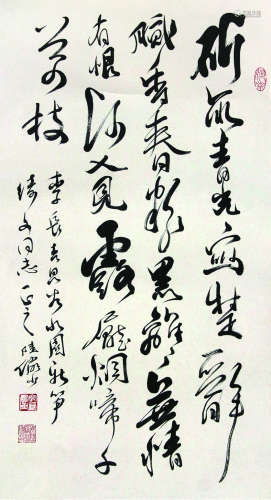 斫取青光寫楚辭
膩香春粉黑離離無情
有恨何人見露壓烟啼千
萬枝
李長吉昌谷北園新筍
文同志正之 陸儼少